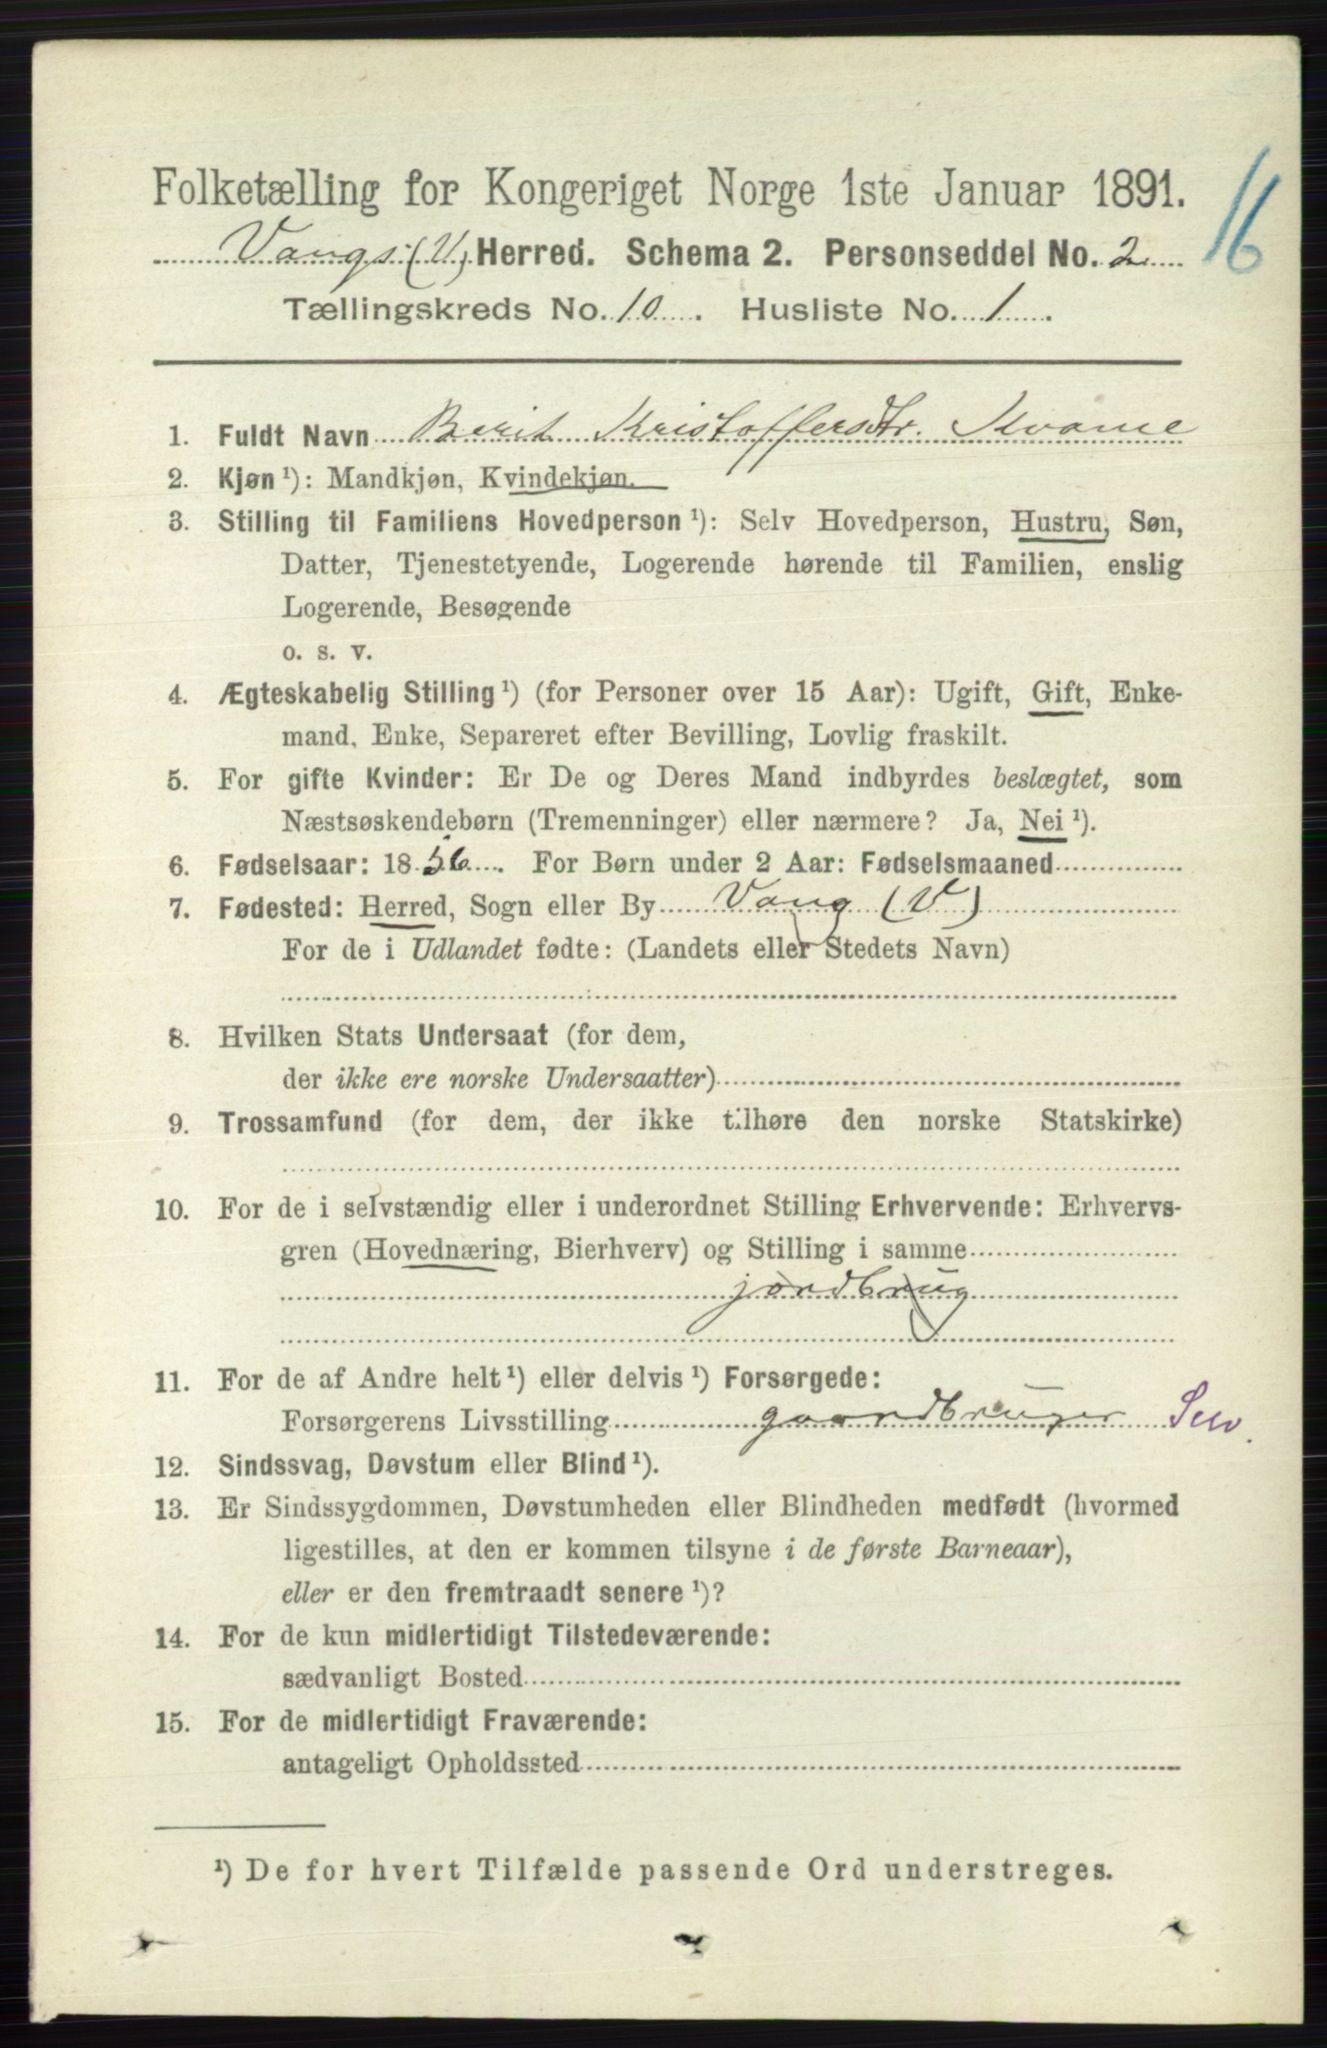 Folketælling for Kongeriget Norge 1ste Januar 1891.
16
Vangs (V) Herred. Schema 2. Personseddel No. 2
Tællingskreds No. 10. Husliste No. 1.
1. Fuldt Navn Berit Kristoffersdtr. Kvame
2. Kjøn ¹): Mandkjøn, Kvindekjøn.
3. Stilling til Familiens Hovedperson ¹): Selv Hovedperson, Hustru, Søn,
Datter, Tjenestetyende, Logerende hørende til Familien, enslig
Logerende, Besøgende
o. s. v.
4. Ægteskabelig Stilling ¹) (for Personer over 15 Aar): Ugift, Gift, Enke-
mand, Enke, Separeret efter Bevilling, Lovlig fraskilt.
5. For gifte Kvinder: Er De og Deres Mand indbyrdes beslægtet, som
Næstsøskendebørn (Tremenninger) eller nærmere? Ja, Nei ¹).
6. Fødselsaar: 1856. For Børn under 2 Aar: Fødselsmaaned
7. Fødested: Herred, Sogn eller By Vang (V)
For de i Udlandet fødte: (Landets eller Stedets Navn)
8. Hvilken Stats Undersaat (for dem,
der ikke ere norske Undersaatter)
9. Trossamfund (for dem, der ikke tilhøre den norske Statskirke)
10. For de i selvstændig eller i underordnet Stilling Erhvervende: Erhvervs-
gren (Hovednæring, Bierhverv) og Stilling i samme
jordbrug
11. For de af Andre helt ¹) eller delvis ¹) Forsørgede:
Forsørgerens Livsstilling gaardbruger Selv.
12. Sindssvag, Døvstum eller Blind ¹).
13. Er Sindssygdommen, Døvstumheden eller Blindheden medfødt (hvormed
ligestilles, at den er kommen tilsyne i de første Barneaar),
eller er den fremtraadt senere ¹)?
14. For de kun midlertidigt Tilstedeværende:
sædvanligt Bosted
15. For de midlertidigt Fraværende:
antageligt Opholdssted
¹) De for hvert Tilfælde passende Ord understreges.